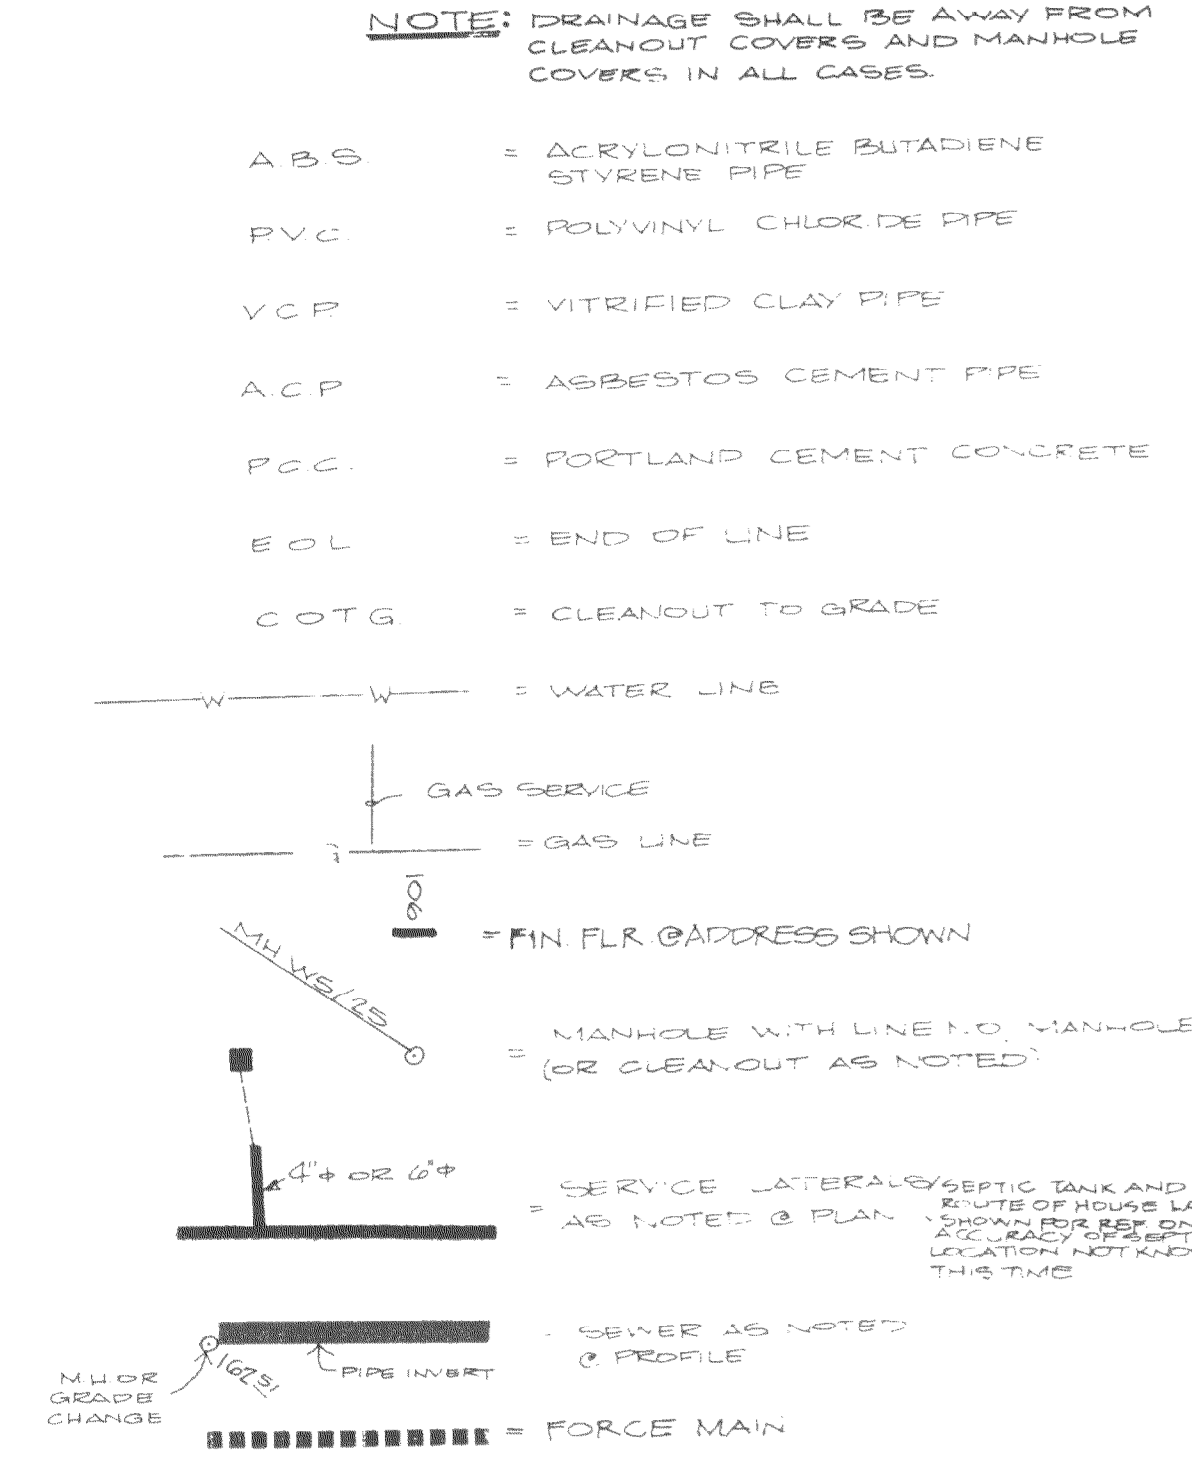 NOTE: DRAINAGE SHALL BE AWAY FROM
CLEANOUT COVERS AND MANHOLE
COVERS IN ALL CASES.
A.B.S. = ACRYLONITRILE BUTADIENE
STYRENE PIPE
P.V.C. = POLYVINYL CHLORIDE PIPE
V C P = VITRIFIED CLAY PIPE
A.C.P = ASBESTOS CEMENT PIPE
P.C.C. = PORTLAND CEMENT CONCRETE
E O L = END OF LINE
C O T G. = CLEANOUT TO GRADE
W W = WATER LINE
GAS SERVICE
= GAS LINE
109
= FIN. FLR. @ ADDRESS SHOWN
MH W5/25
= MANHOLE WITH LINE NO. MANHOLE
(OR CLEANOUT AS NOTED)
4"ϕ OR 6"ϕ
= SERVICE LATERALS/
AS NOTED @ PLAN
SEPTIC TANK AND
ROUTE OF HOUSE
SHOWN FOR REF.
ACCURACY OF
LOCATION NOT
THIS TIME
SEWER AS NOTED
@ PROFILE
PIPE INVERT
M.H. OR
GRADE
CHANGE
= FORCE MAIN